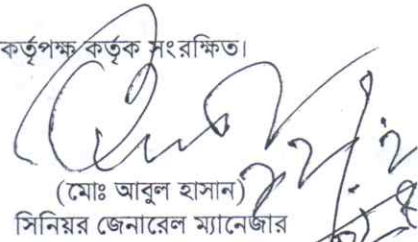 কর্তৃপক্ষ কর্তৃক সংরক্ষিত।
(মোঃ আবুল হাসান)
সিনিয়র জেনারেল ম্যানেজার